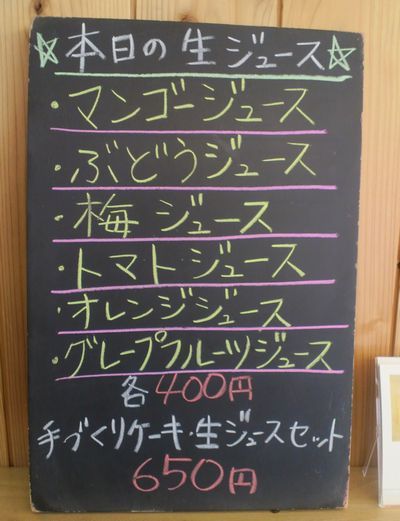 ☆本日の生ジュース☆
・マンゴージュース
・ぶどうジュース
・梅ジュース
・トマトジュース
・オレンジジュース
・グレープフルーツジュース
各400円
手づくりケーキ・生ジュースセット
650円